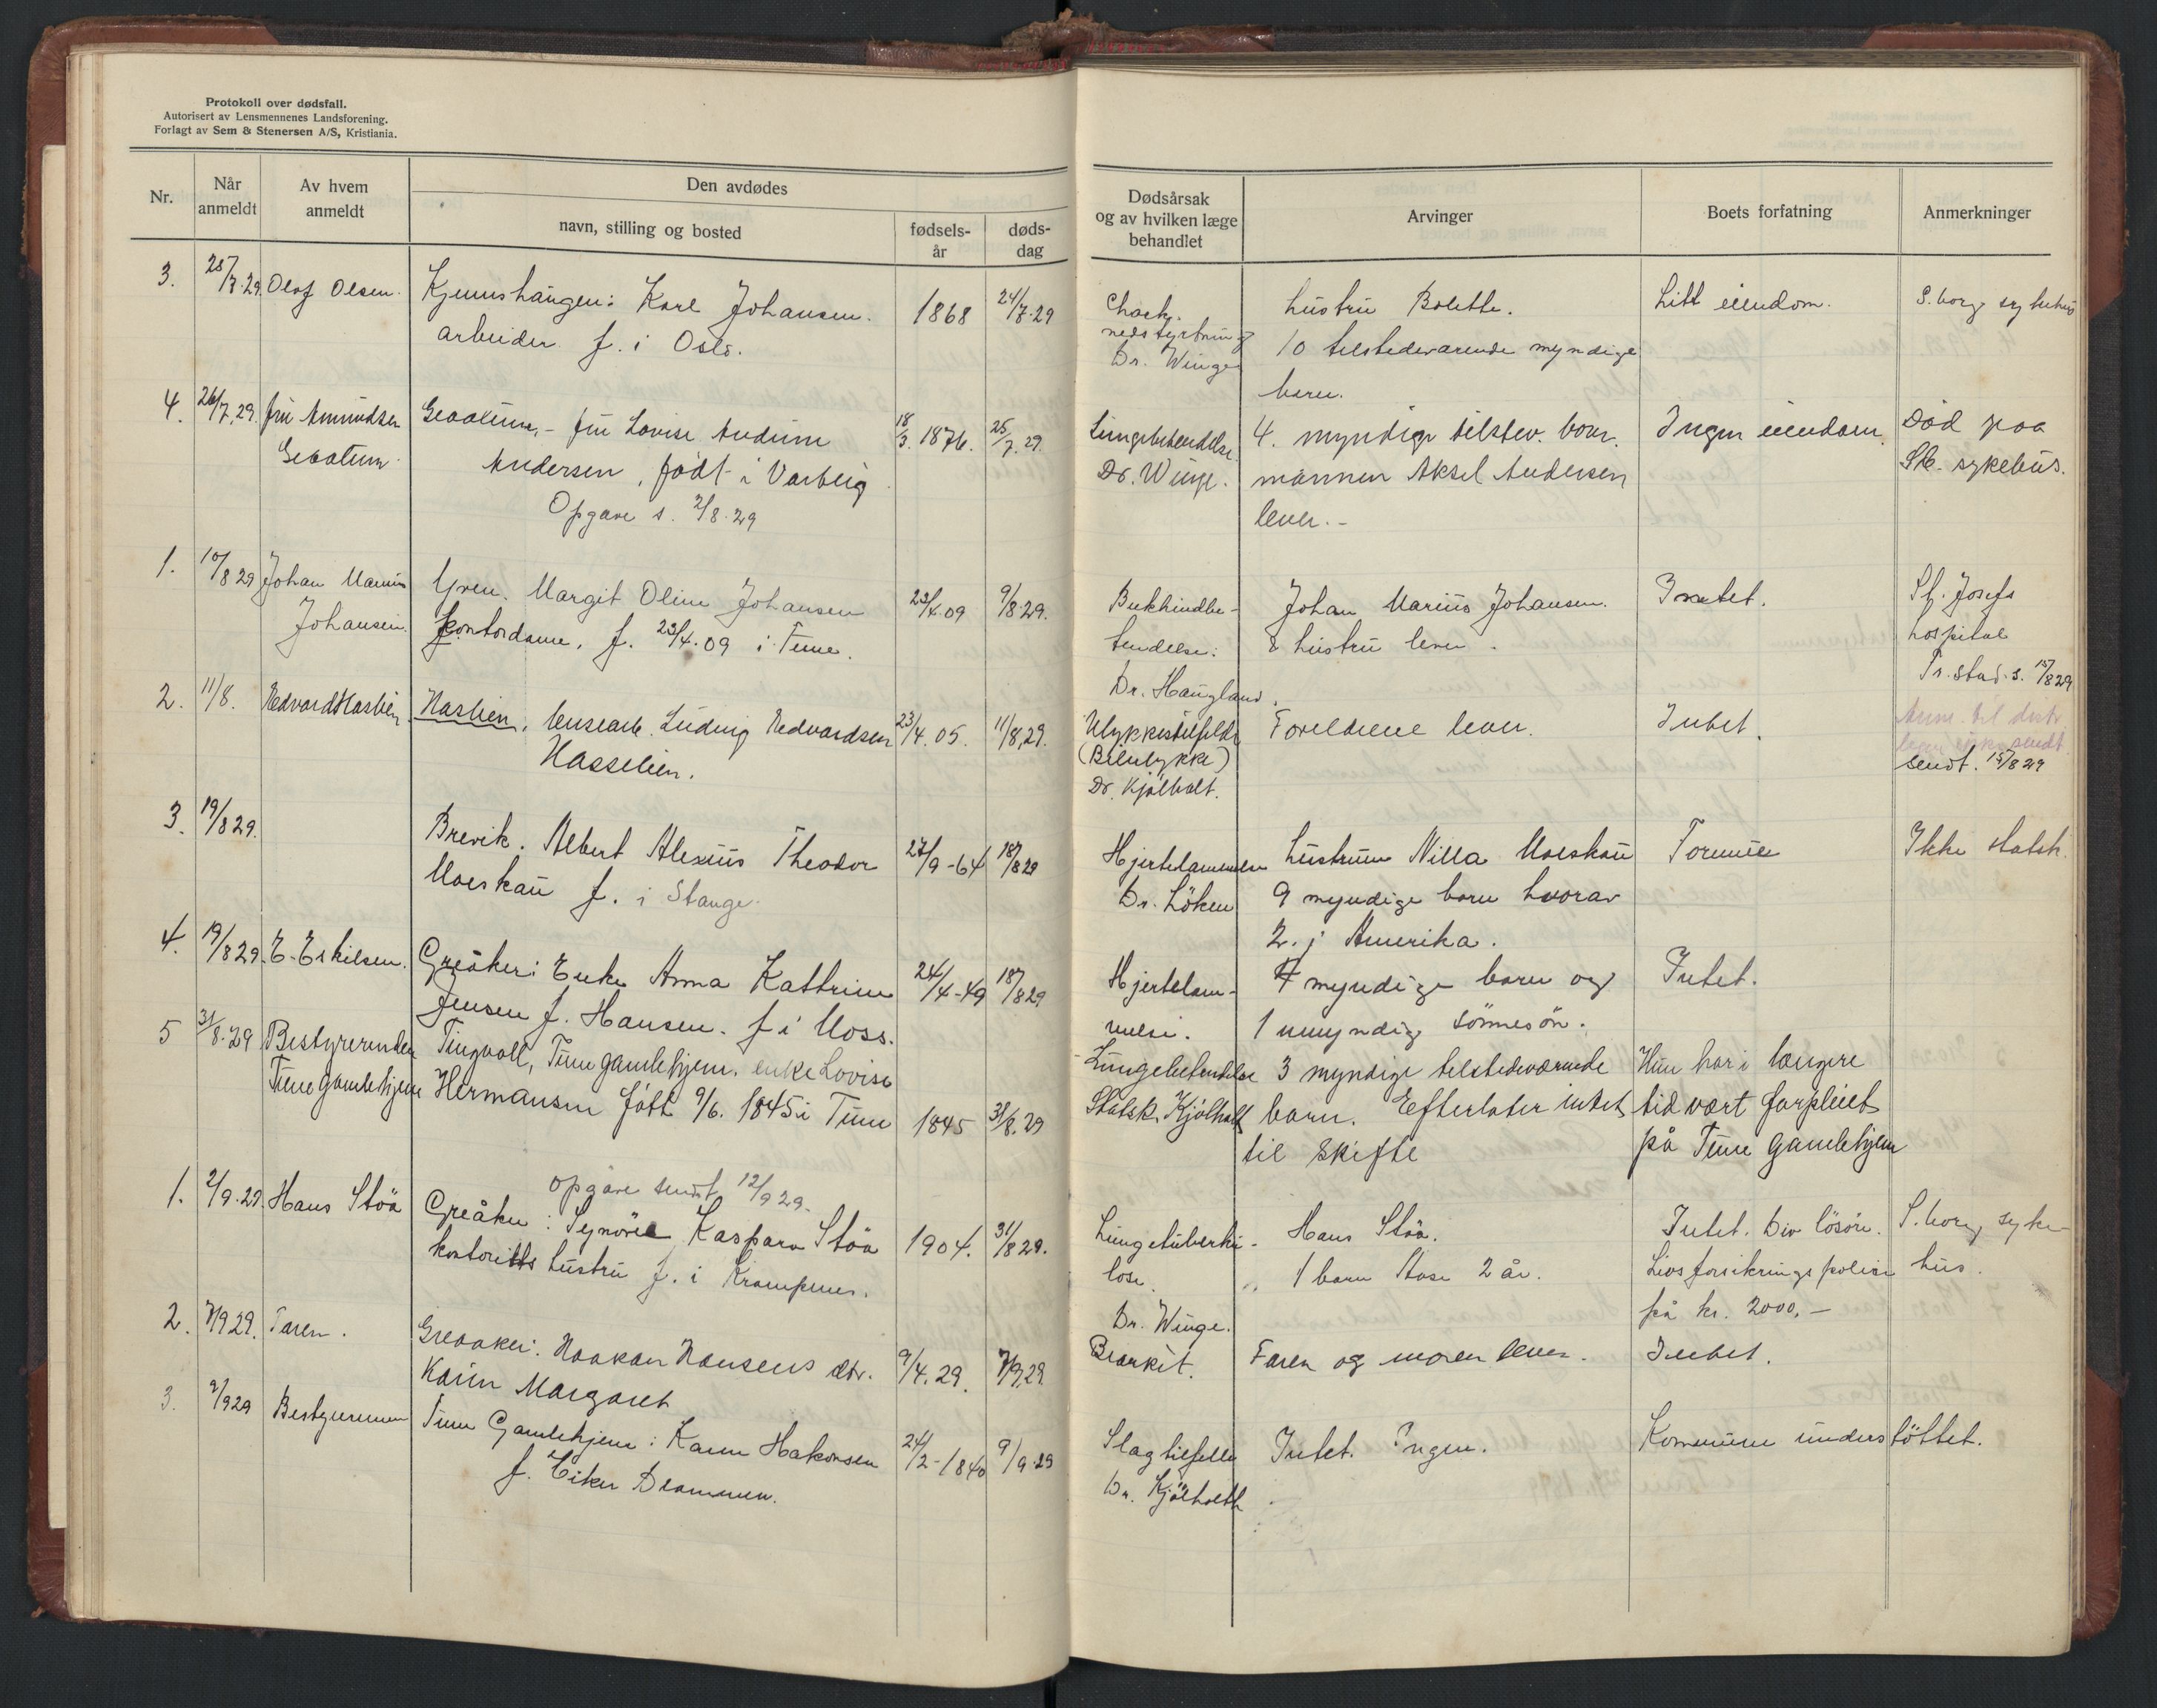 Protokoll over dødsfall.
Autorisert av Lensmennenes Landsforening.
Forlagt av Sem & Stenersen A/S, Kristiania.
Nr.
Når anmeldt
Av hvem anmeldt
Den avdødes
navn, stilling og bosted
fødsels-år
døds-dag
Dødsårsak og av hvilken læge behandlet
Arvinger
Boets forfatning
Anmerkninger
3. 25/7.29 Olaf Olsen. Kjennshaugen: Karl Johansen. 1868 24/7.29
arbeider f. i Oslo.
Chock. hustru Bolette. Litt eiendom. S.borg sykehus
nedstyrtning 10 tilstedeværende myndige
Dr. Winge barn.
4. 26/7.29. fru Amundsen Greåker.- fru Lovise Andrine 18/3. 1876. 25/7.29.
Andersen, født i Varberg
Opgave s. 2/8.29
Lungebetendelse 4. myndige tilstev. barn. Ingen eiendom. Död paa
Dr. Winge. mannen Aksel Andersen Sb. sykehus.
lever.-
1. 10/8 29 Johan Marius Yven. Margit Oline Johansen 23/4.09 9/8 29.
Johansen. kontordame. f. 23/4.09 i Tune.
Bukhindbe- Johan Marius Johansen. Intet. St. Josefs
tendelse. & hustru lever. hospital
Dr. Haugland. 15/8 29
2. 11/8. Hedvard Haslien Haslien, Ludvig Hedvardsen 23/4.05. 11/8.29.
Hasselien.
Ulykkestilfelde Foreldrene lever. Intet.
(Bilulykke) sendt
Dr. Kjölholt. sendt. 15/8 29
3. 19/8 29. Brevik. Albert Alexius Theodor 27/9-64 18/8 29
Moeskau f. i Stange.
Hjertelammelse hustruen Nilla Moeskau Formue Ikke statsk.
Dr. Löken 9 myndige barn hvorav
2. i Amerika.
4. 19/8 29. E. Eskilsen. Greåker: Enke Anna Kathrine 24/4-49 18/8 29
Jensen f. Hansen. f i Moss.
Hjertelam- 4 myndige barn og Intet.
melse. 1 umyndig sönnesön.
5 31/8.29 Bestyrerinden Tingvoll, Tune gamlehjem. enke Lovise
Tune gamlehjem Hermansen født 9/6. 1845 i Tune 1845 31/8.29
Lungebetendelse 3 myndige tilstedeværende Hun har i længere
Statsk. Kjölholt barn. Efterlater intet tid vært forpleiet
til skifte på Tune Gamlehjem
opgave sendt 12/9 29.
1. 2/9.29. Hans Stöa Greåker: Synöve Kaspara Stöa 1904. 31/8 29.
kontorists hustru f. i
Lungetuberku- Hans Stöa. Intet. Div lösöre. S.borg syke-
lose. " 1 barn Aase 2 år. Livsforsikringspolise hus.
Dr. Winge. på kr. 2000,-
2. 7/9 29. Faren. Greaaker: Haakon Hansens dtr. 9/4.29. 7/9.29.
Karin Margaret
Bronkit. Faren og moren lever. Intet.
3. 9/9 29 Bestyrerinnen Tune Gamlehjem: Karen Hakonsen 24/2-1840 9/9.29
f. Eiker Drammen.
Slagtilfelle Intet. Ingen. Kommune understöttet.
Dr. Kjölholth